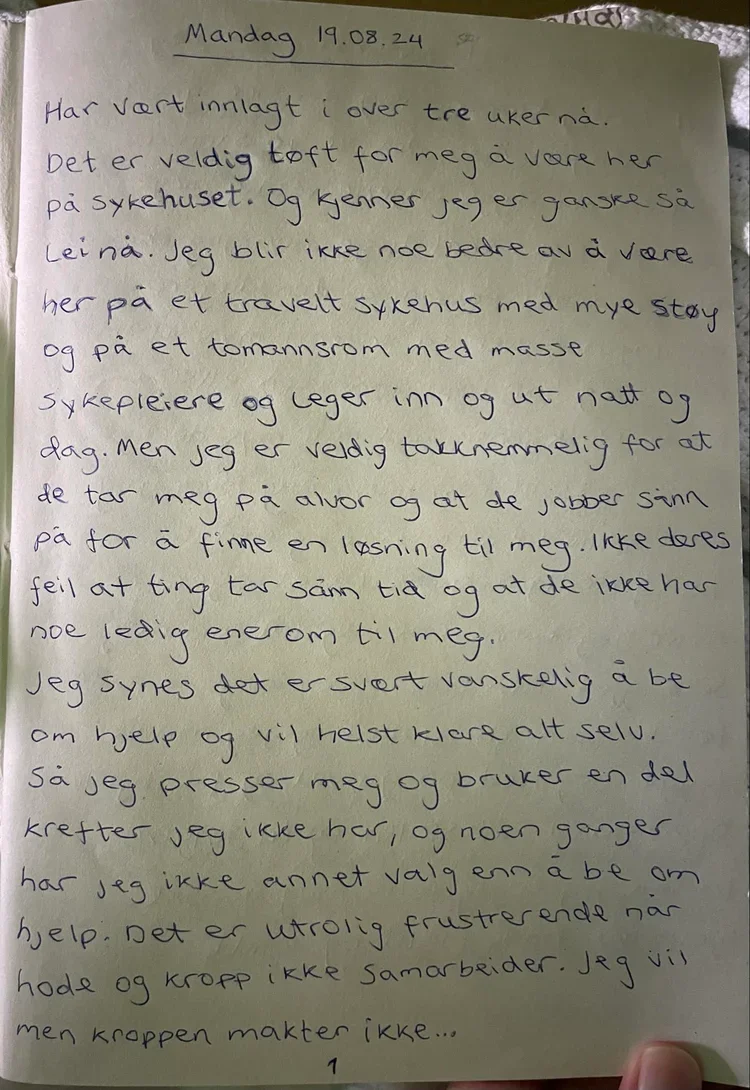 Mandag 19.08.24
Har vært innlagt i over tre uker nå.
Det er veldig tøft for meg å være her
på sykehuset. Og kjenner jeg er ganske så
lei nå. Jeg blir ikke noe bedre av å være
her på et travelt sykehus med mye støy
og på et tomannsrom med masse
sykepleiere og leger inn og ut natt og
dag. Men jeg er veldig takknemmelig for at
de tar meg på alvor og at de jobber sånn
på for å finne en løsning til meg. Ikke deres
feil at ting tar sånn tid og at de ikke har
noe ledig enerom til meg.
Jeg synes det er svært vanskelig å be
om hjelp og vil helst klare alt selv.
Så jeg presser meg og bruker en del
krefter jeg ikke har, og noen ganger
har jeg ikke annet valg enn å be om
hjelp. Det er utrolig frustrerende når
hode og kropp ikke samarbeider. Jeg vil
men kroppen makter ikke...
1